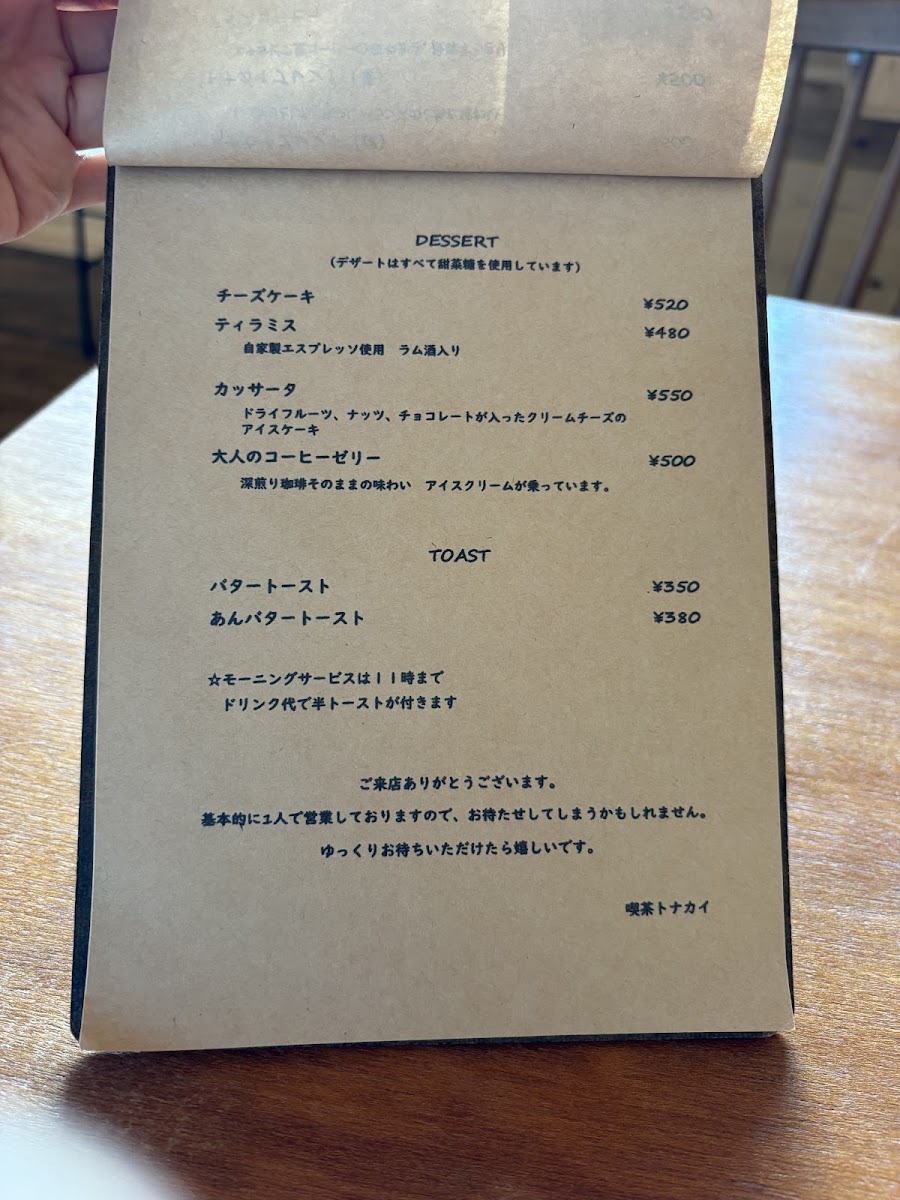 DESSERT
(デザートはすべて甜菜糖を使用しています)
チーズケーキ ¥520
ティラミス ¥480
自家製エスプレッソ使用 ラム酒入り
カッサータ ¥550
ドライフルーツ、ナッツ、チョコレートが入ったクリームチーズの
アイスケーキ
大人のコーヒーゼリー ¥500
深煎り珈琲そのままの味わい アイスクリームが乗っています。
TOAST
バタートースト ¥350
あんバタートースト ¥380
☆モーニングサービスは11時まで
ドリンク代で半トーストが付きます
ご来店ありがとうございます。
基本的に1人で営業しておりますので、お待たせしてしまうかもしれません。
ゆっくりお待ちいただけたら嬉しいです。
喫茶トナカイ